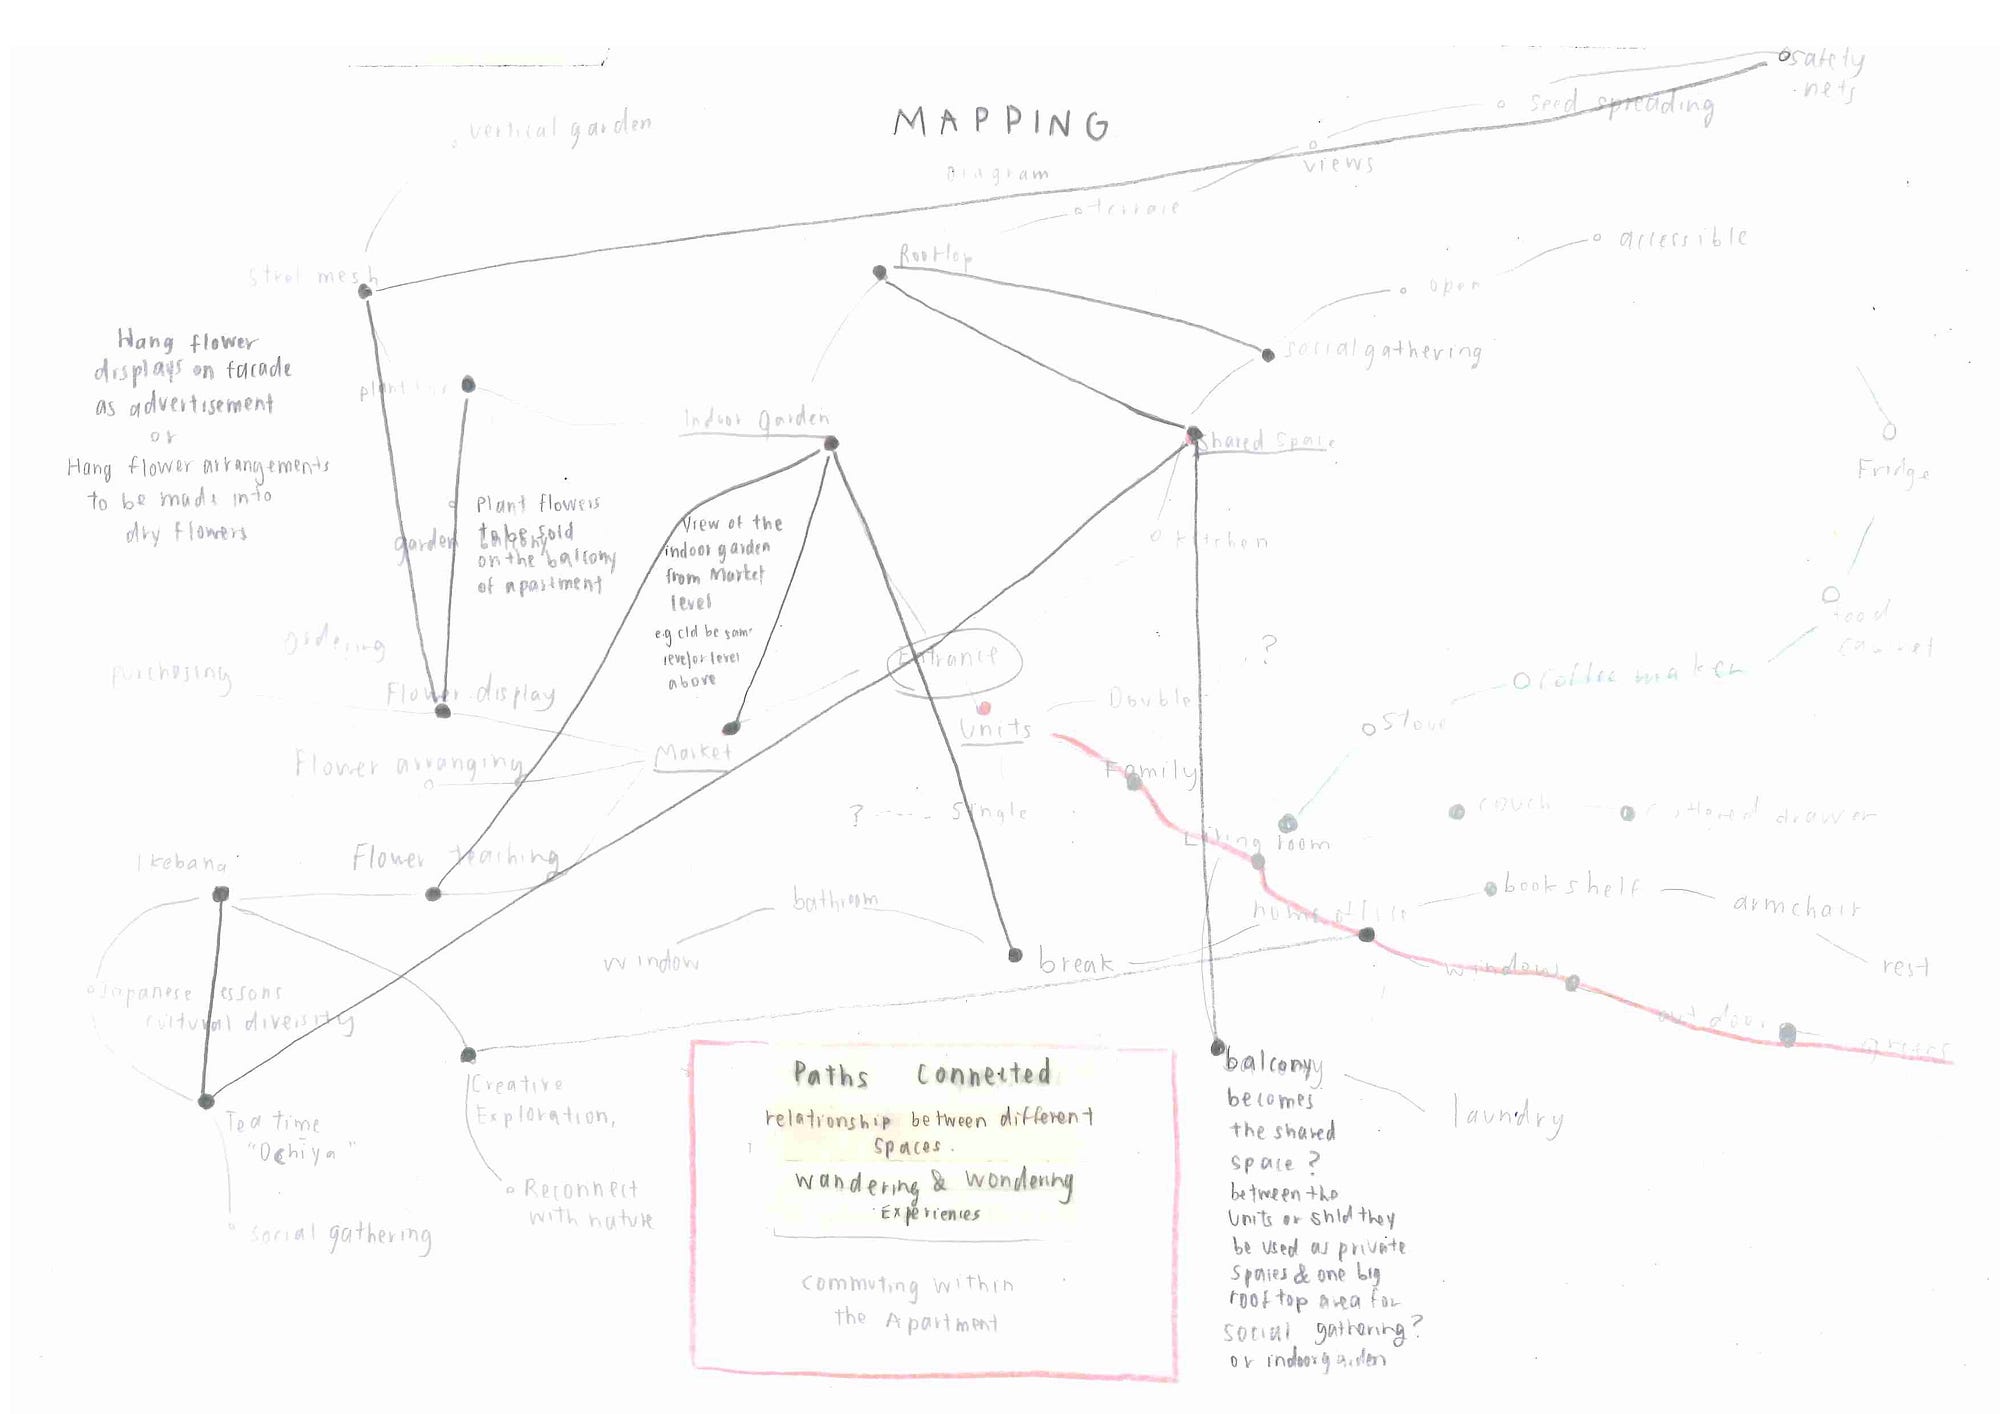 MAPPING
Diagram
safety
nets
seed spreading
views
terrace
vertical garden
Steel mesh
Rooftop
accessible
open
social gathering
Hang flower
displays on facade
as advertisement
or
Hang flower arrangements
to be made into
dry flowers
Indoor garden
Shared Space
kitchen
Fridge
food
Plant flowers
to be sold
on the balcony
of apartment
garden
View of the
indoor garden
from Market
level
e.g cld be sam
level or level
above
Entrance
?
purchasing
Flower display
Market
Flower arranging
Units
Double
Family
? ---- Single
coffee maker
Stove
Living room
couch
drawer
Ikebana
Flower teaching
bathroom
window
break
home office
bookshelf
armchair
rest
window
outdoor
Japanese lessons
cultural diversity
Creative
Exploration,
Reconnect
with nature
Tea time
"Ochiya"
social gathering
Paths Connected
relationship between different
spaces.
wandering & wondering
Experiences
commuting within
the Apartment
balcony
becomes
the shared
space?
between the
units or shld they
be used as private
spaces & one big
rooftop area for
social gathering?
or indoor garden
laundry